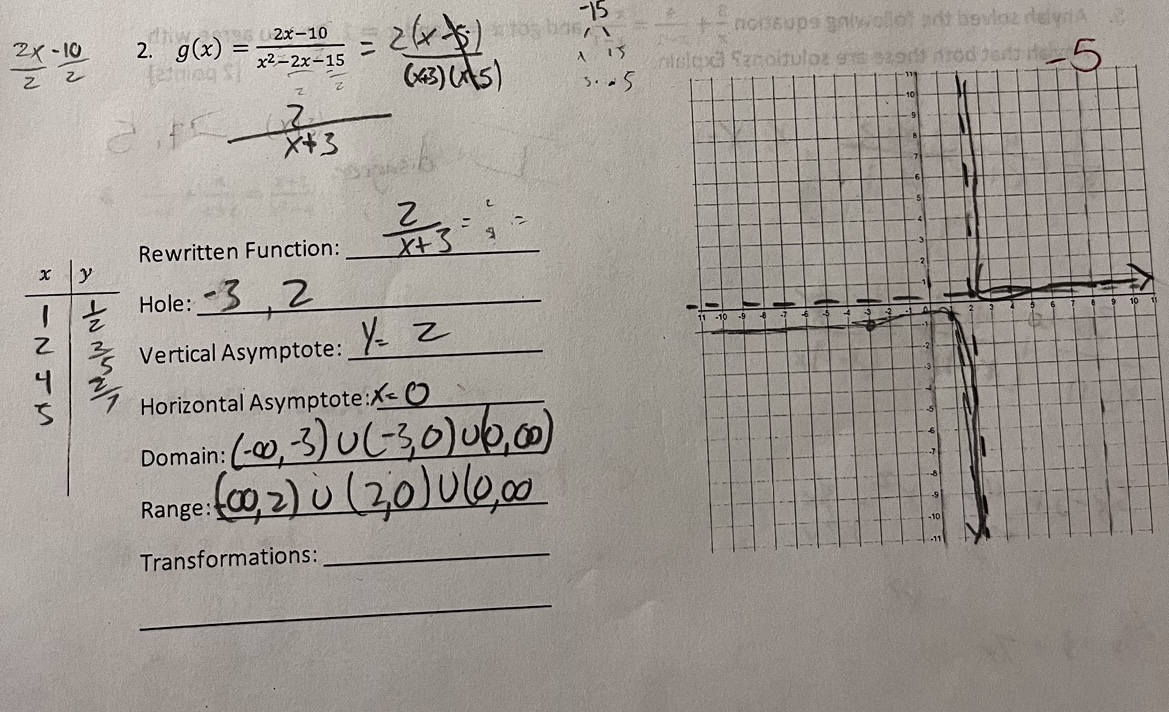 2x-10
2 2
2. g(x) = 2x-10 / x²-2x-15 = 2(x-5) / (x+3)(x-5)
-15
1 15
3 -5
-5
2
x+3
Rewritten Function: 2 / x+3
Hole: -3, 2
Vertical Asymptote: y= 2
Horizontal Asymptote: x= 0
Domain: (-∞, -3) ∪ (-3, 0) ∪ (0, ∞)
Range: (-∞, 2) ∪ (2, 0) ∪ (0, ∞
Transformations:
x y
1 1/2
2 2/5
4 2/7
5
11
10
9
8
7
6
5
4
3
2
1
11 -10 -9 -8 -7 -6 -5 -4 -3 -2 -1 0 2 3 4 5 6 7 8 9 10 11
-1
-2
-3
-5
-6
-7
-8
-9
-10
-11